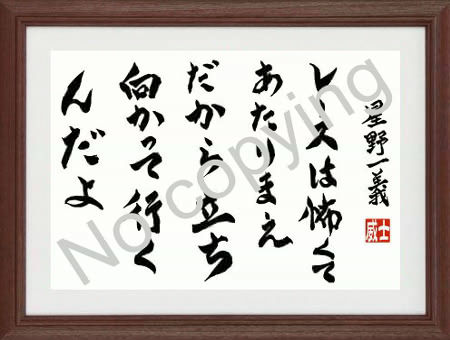 星野一義
威士
レースは怖くて
あたりまえ
だから立ち
向かって行く
んだよ
No copying